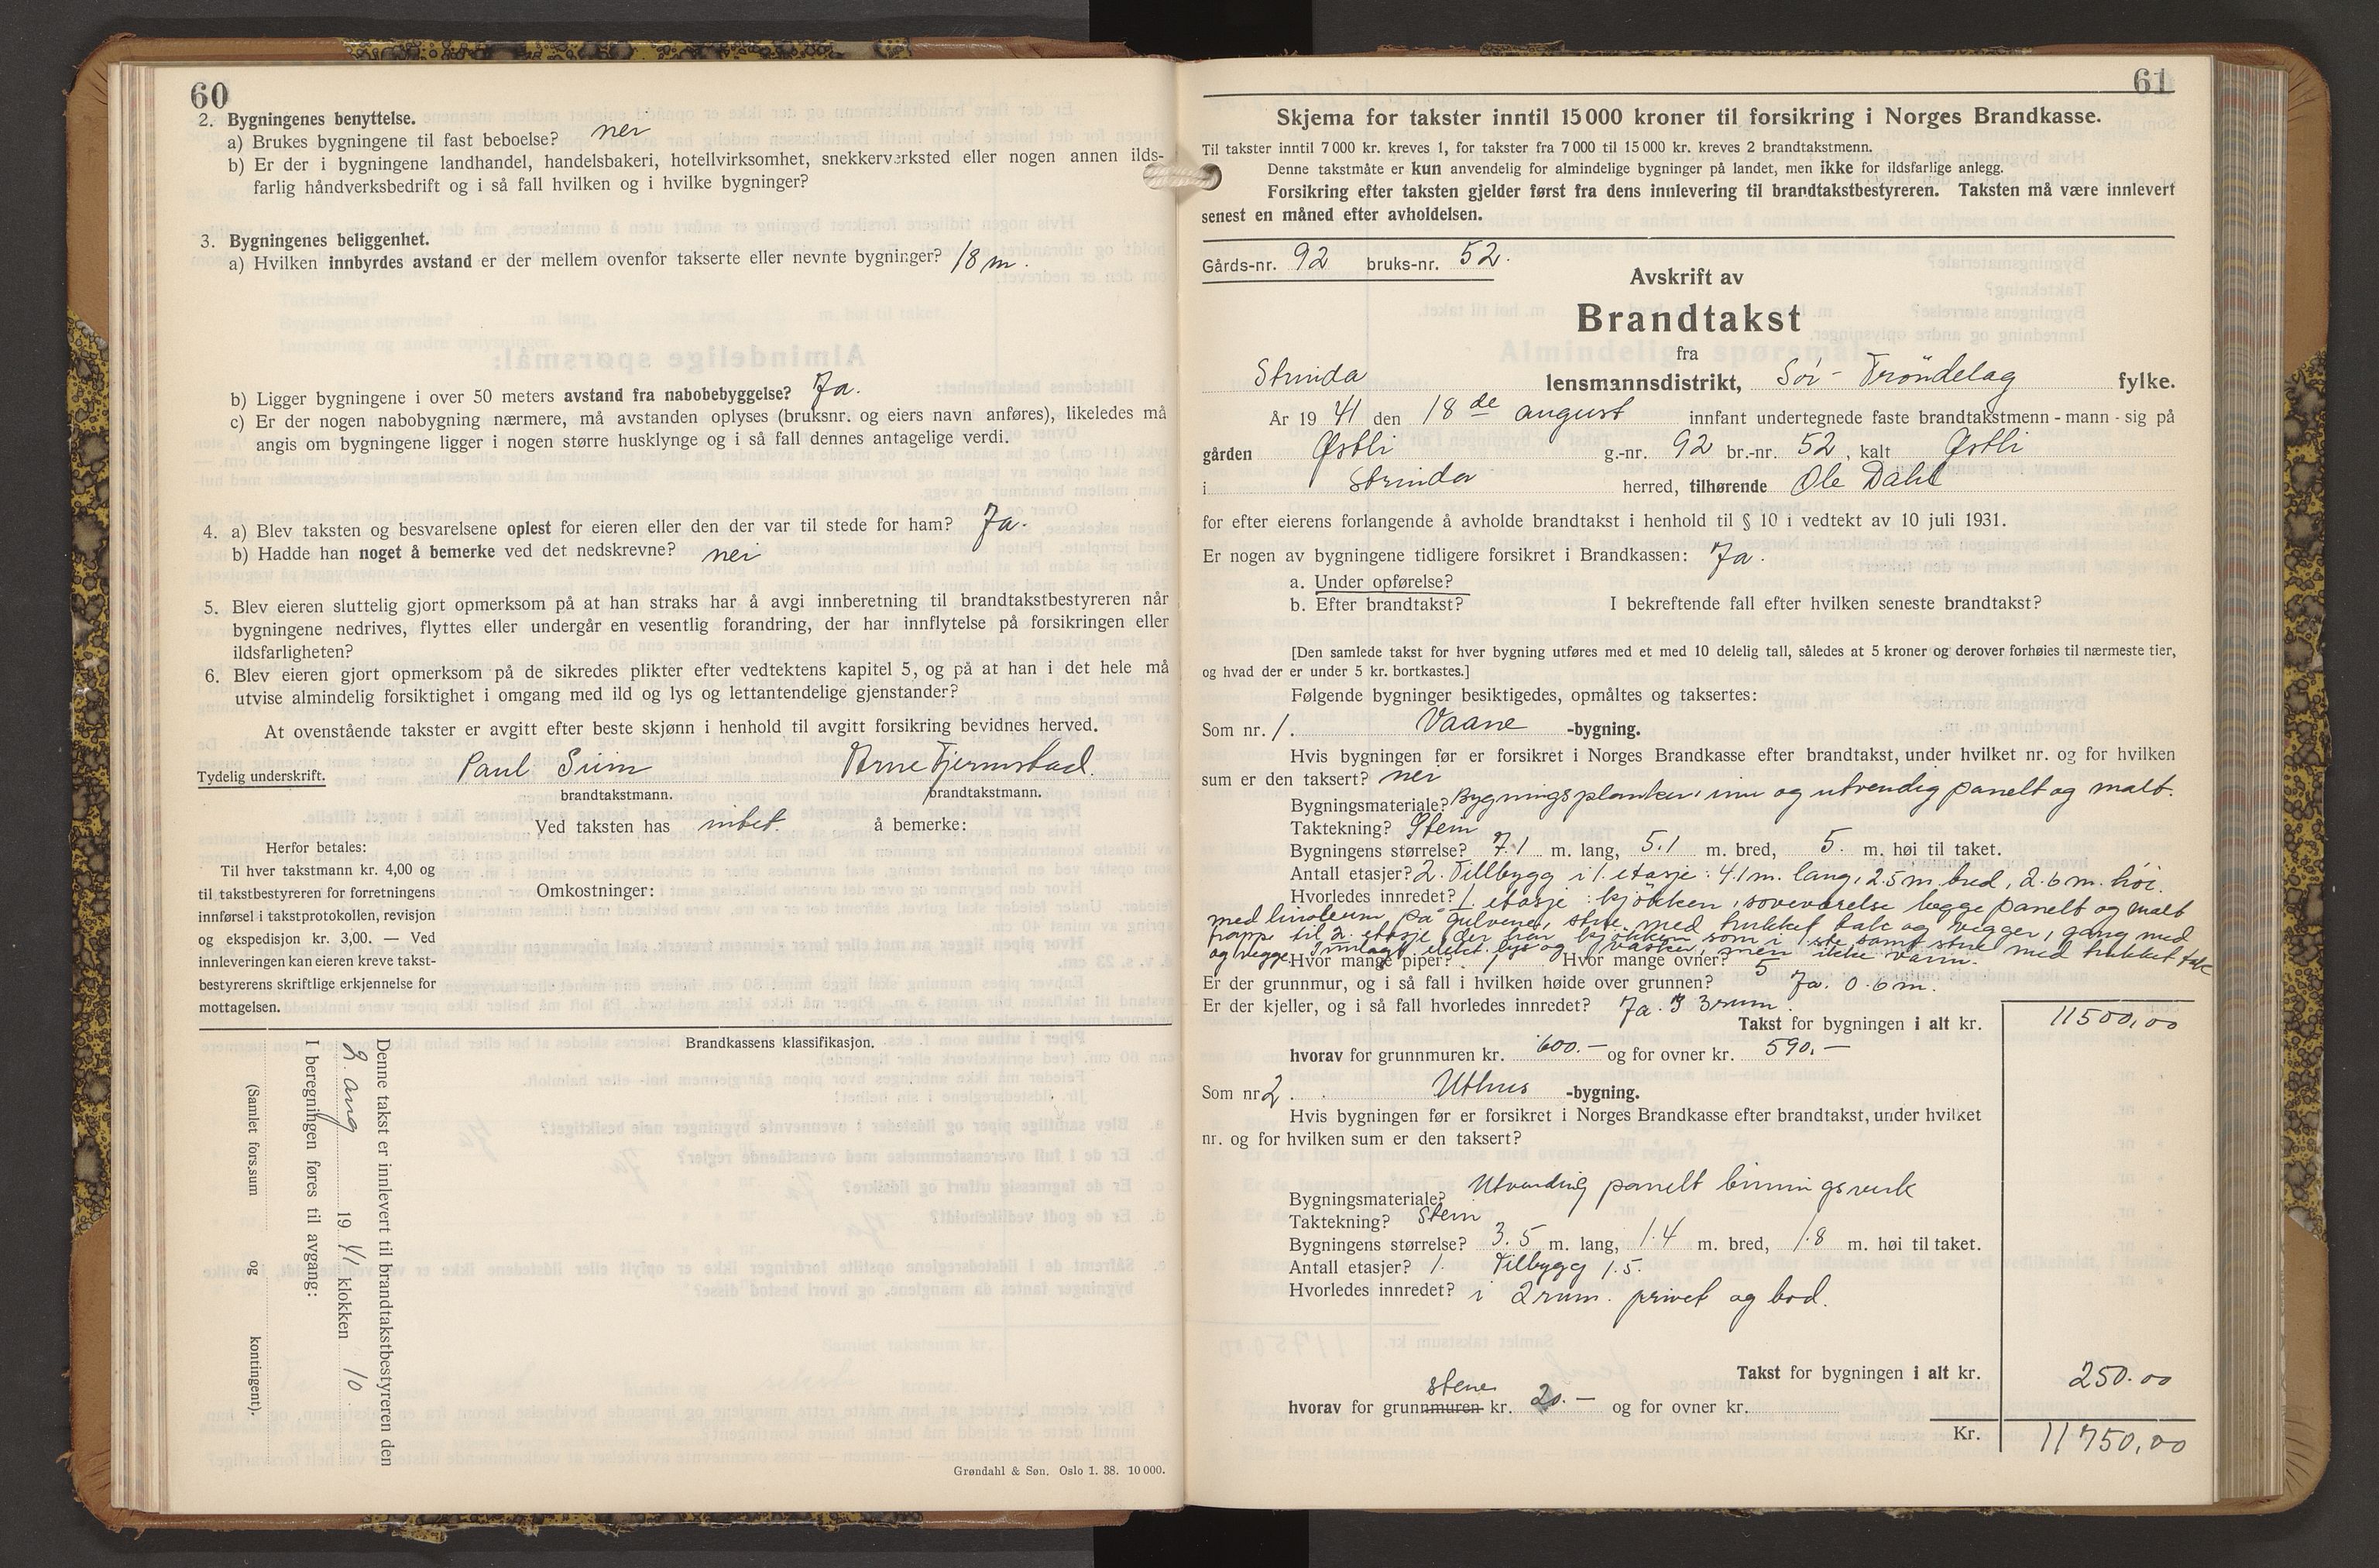 60
2. Bygningenes benyttelse.
a) Brukes bygningene til fast beboelse? nei
b) Er der i bygningene landhandel, handelsbakeri, hotellvirksomhet, snekkerverksted eller nogen annen ilds-
farlig håndverksbedrift og i så fall hvilken og i hvilke bygninger?
3. Bygningenes beliggenhet.
a) Hvilken innbyrdes avstand er der mellem ovenfor takserte eller nevnte bygninger? 18 m.
b) Ligger bygningene i over 50 meters avstand fra nabobebyggelse? Ja.
c) Er der nogen nabobygning nærmere, må avstanden oplyses (bruksnr. og eiers navn anføres), likeledes må
angis om bygningene ligger i nogen større husklynge og i så fall dennes antagelige verdi.
4. a) Blev taksten og besvarelsene oplest for eieren eller den der var til stede for ham? Ja.
b) Hadde han noget å bemerke ved det nedskrevne? nei
5. Blev eieren sluttelig gjort opmerksom på at han straks har å avgi innberetning til brandtakstbestyreren når
bygningene nedrives, flyttes eller undergår en vesentlig forandring, der har innflytelse på forsikringen eller
ildsfarligheten?
6. Blev eieren gjort opmerksom på de sikredes plikter efter vedtektens kapitel 5, og på at han i det hele må
utvise almindelig forsiktighet i omgang med ild og lys og lettantendelige gjenstander?
At ovenstående takster er avgitt efter beste skjønn i henhold til avgitt forsikring bevidnes herved.
Tydelig underskrift. Paul Arne Fjermstad.
brandtakstmann. brandtakstmann.
Ved taksten has intet. å bemerke:
Herfor betales:
Til hver takstmann kr. 4,00 og
til takstbestyreren for forretningens
innførsel i takstprotokollen, revisjon
og ekspedisjon kr. 3,00. — Ved
innleveringen kan eieren kreve takst-
bestyrerens skriftlige erkjennelse for
mottagelsen.
Omkostninger:
Brandkassens klassifikasjon.
Denne takst er innlevert til brandtakstbestyreren den
2. aug 19 41 klokken 10
I beregningen føres til avgang:
(Samlet fors.sum og kontingent).
Grøndahl & Søn. Oslo 1. 38. 10 000.
61
Skjema for takster inntil 15 000 kroner til forsikring i Norges Brandkasse.
Til takster inntil 7 000 kr. kreves 1, for takster fra 7 000 til 15 000 kr. kreves 2 brandtakstmenn.
Denne takstmåte er kun anvendelig for almindelige bygninger på landet, men ikke for ildsfarlige anlegg.
Forsikring efter taksten gjelder først fra dens innlevering til brandtakstbestyreren. Taksten må være innlevert
senest en måned efter avholdelsen.
Gårds-nr. 92 bruks-nr. 52.
Avskrift av
Brandtakst
fra
Strinda lensmannsdistrikt, Sör-Tröndelag fylke.
År 19 41 den 18de august innfant undertegnede faste brandtakstmenn - mann - sig på
gården Østli g.-nr. 92 br.-nr. 52, kalt Østli
i Strinda herred, tilhørende Ole Dahl
for efter eierens forlangende å avholde brandtakst i henhold til § 10 i vedtekt av 10 juli 1931.
Er nogen av bygningene tidligere forsikret i Brandkassen: Ja.
a. Under opførelse?
b. Efter brandtakst? I bekreftende fall efter hvilken seneste brandtakst?
[Den samlede takst for hver bygning utføres med et med 10 delelig tall, således at 5 kroner og derover forhøies til nærmeste tier,
og hvad der er under 5 kr. bortkastes.]
Følgende bygninger besiktigedes, opmåltes og taksertes:
Som nr. 1. Vaane -bygning.
Hvis bygningen før er forsikret i Norges Brandkasse efter brandtakst, under hvilket nr. og for hvilken
sum er den taksert? nei
Bygningsmateriale? Bygningsplanker, inn og utvendig panelt og malt.
Taktekning? Stein
Bygningens størrelse? 7.1 m. lang, 5.1 m. bred, 5. m. høi til taket.
Antall etasjer? 2. Tillbygg i 1. etasje: 4.1 m. lang, 2.5 m. bred, 2.6 m. höi.
Hvorledes innredet? 1. etasje: kjökken, soveværelse begge panelt og malt
med linoleum på gulvene, stue med trukket tak og vegger, gang med
trapp til 2. etasje der kjökken som i 1ste samt stue med trukket tak
og vegge. Innlagt elekt. lys og vasken, men ikke vann.
Hvor mange piper? 1 Hvor mange ovner? 5
Er der grunnmur, og i så fall i hvilken høide over grunnen? Ja. 0.6 m.
Er der kjeller, og i så fall hvorledes innredet? Ja. I 3 rum.
Takst for bygningen i alt kr. 11500,00
hvorav for grunnmuren kr. 600.— og for ovner kr. 590.—
Som nr 2. Uthus -bygning.
Hvis bygningen før er forsikret i Norges Brandkasse efter brandtakst, under hvilket
nr. og for hvilken sum er den taksert?
Bygningsmateriale? Utvendig panelt binningsverk
Taktekning? Stein
Bygningens størrelse? 3.5 m. lang, 1.4 m. bred, 1.8 m. høi til taket.
Antall etasjer? 1. Tilbygg 1.5.
Hvorledes innredet? i 2 rum. privet og bod.
Takst for bygningen i alt kr. 250.00
stene
hvorav for grunnmuren kr. 20.— og for ovner kr.
Kr. 11750,00